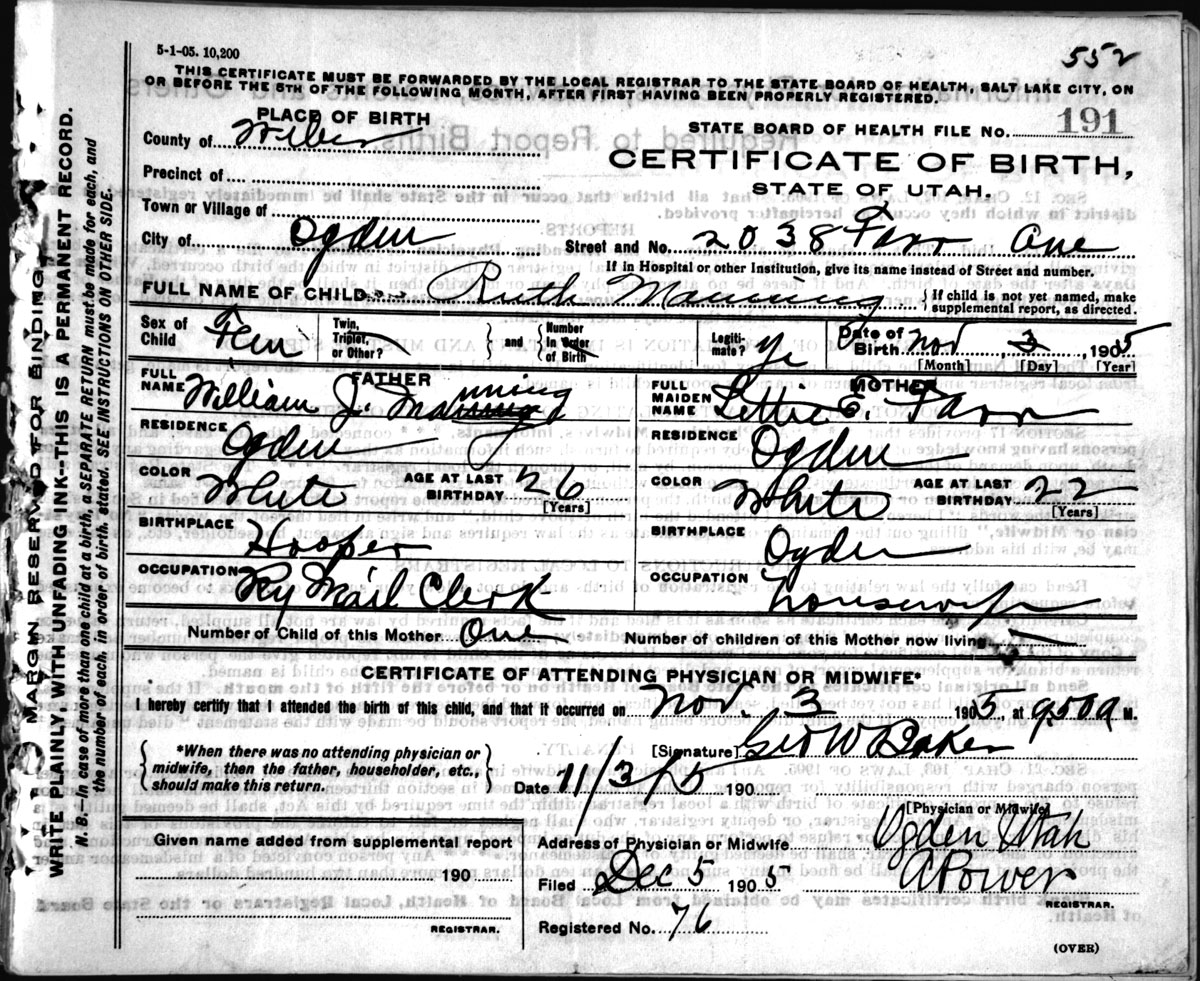 5-1-05. 10,200
552
THIS CERTIFICATE MUST BE FORWARDED BY THE LOCAL REGISTRAR TO THE STATE BOARD OF HEALTH, SALT LAKE CITY, ON
OR BEFORE THE 5TH OF THE FOLLOWING MONTH, AFTER FIRST HAVING BEEN PROPERLY REGISTERED.
PLACE OF BIRTH
STATE BOARD OF HEALTH FILE NO. 191
County of Weber
CERTIFICATE OF BIRTH,
STATE OF UTAH.
Precinct of
Town or Village of
City of Ogden
Street and No. 2038 Farr Ave
If in Hospital or other Institution, give its name instead of Street and number.
FULL NAME OF CHILD Ruth Manning {If child is not yet named, make supplemental report, as directed.
Sex of Child Fem
Twin, Triplet, or Other?
and
Number in Order of Birth
Legitimate? Ye
Date of Birth Nov 3, 1905
[Month] [Day] [Year]
FATHER
FULL NAME William J. Manning
RESIDENCE Ogden
COLOR White AGE AT LAST BIRTHDAY 26
[Years]
BIRTHPLACE Hooper
OCCUPATION Ry Mail Clerk
MOTHER
FULL MAIDEN NAME Lettie E. Farr
RESIDENCE Ogden
COLOR White AGE AT LAST BIRTHDAY 22
[Years]
BIRTHPLACE Ogden
OCCUPATION housewife
Number of Child of this Mother One
Number of children of this Mother now living
CERTIFICATE OF ATTENDING PHYSICIAN OR MIDWIFE*
I hereby certify that I attended the birth of this child, and that it occurred on Nov. 3 1905, at 9.50 a M.
{*When there was no attending physician or
midwife, then the father, householder, etc.,
should make this return.}
[Signature] Geo W Baker
Date 11/3/5 190
[Physician or Midwife]
Given name added from supplemental report
190
REGISTRAR.
Address of Physician or Midwife Ogden Utah
Filed Dec 5 1905 A Power
REGISTRAR.
Registered No. 76
(OVER)
MARGIN RESERVED FOR BINDING
WRITE PLAINLY WITH UNFADING INK--THIS IS A PERMANENT RECORD.
N. B.--In case of more than one child at a birth, a SEPARATE RETURN must be made for each, and
the number of each, in order of birth, stated. SEE INSTRUCTIONS ON OTHER SIDE.